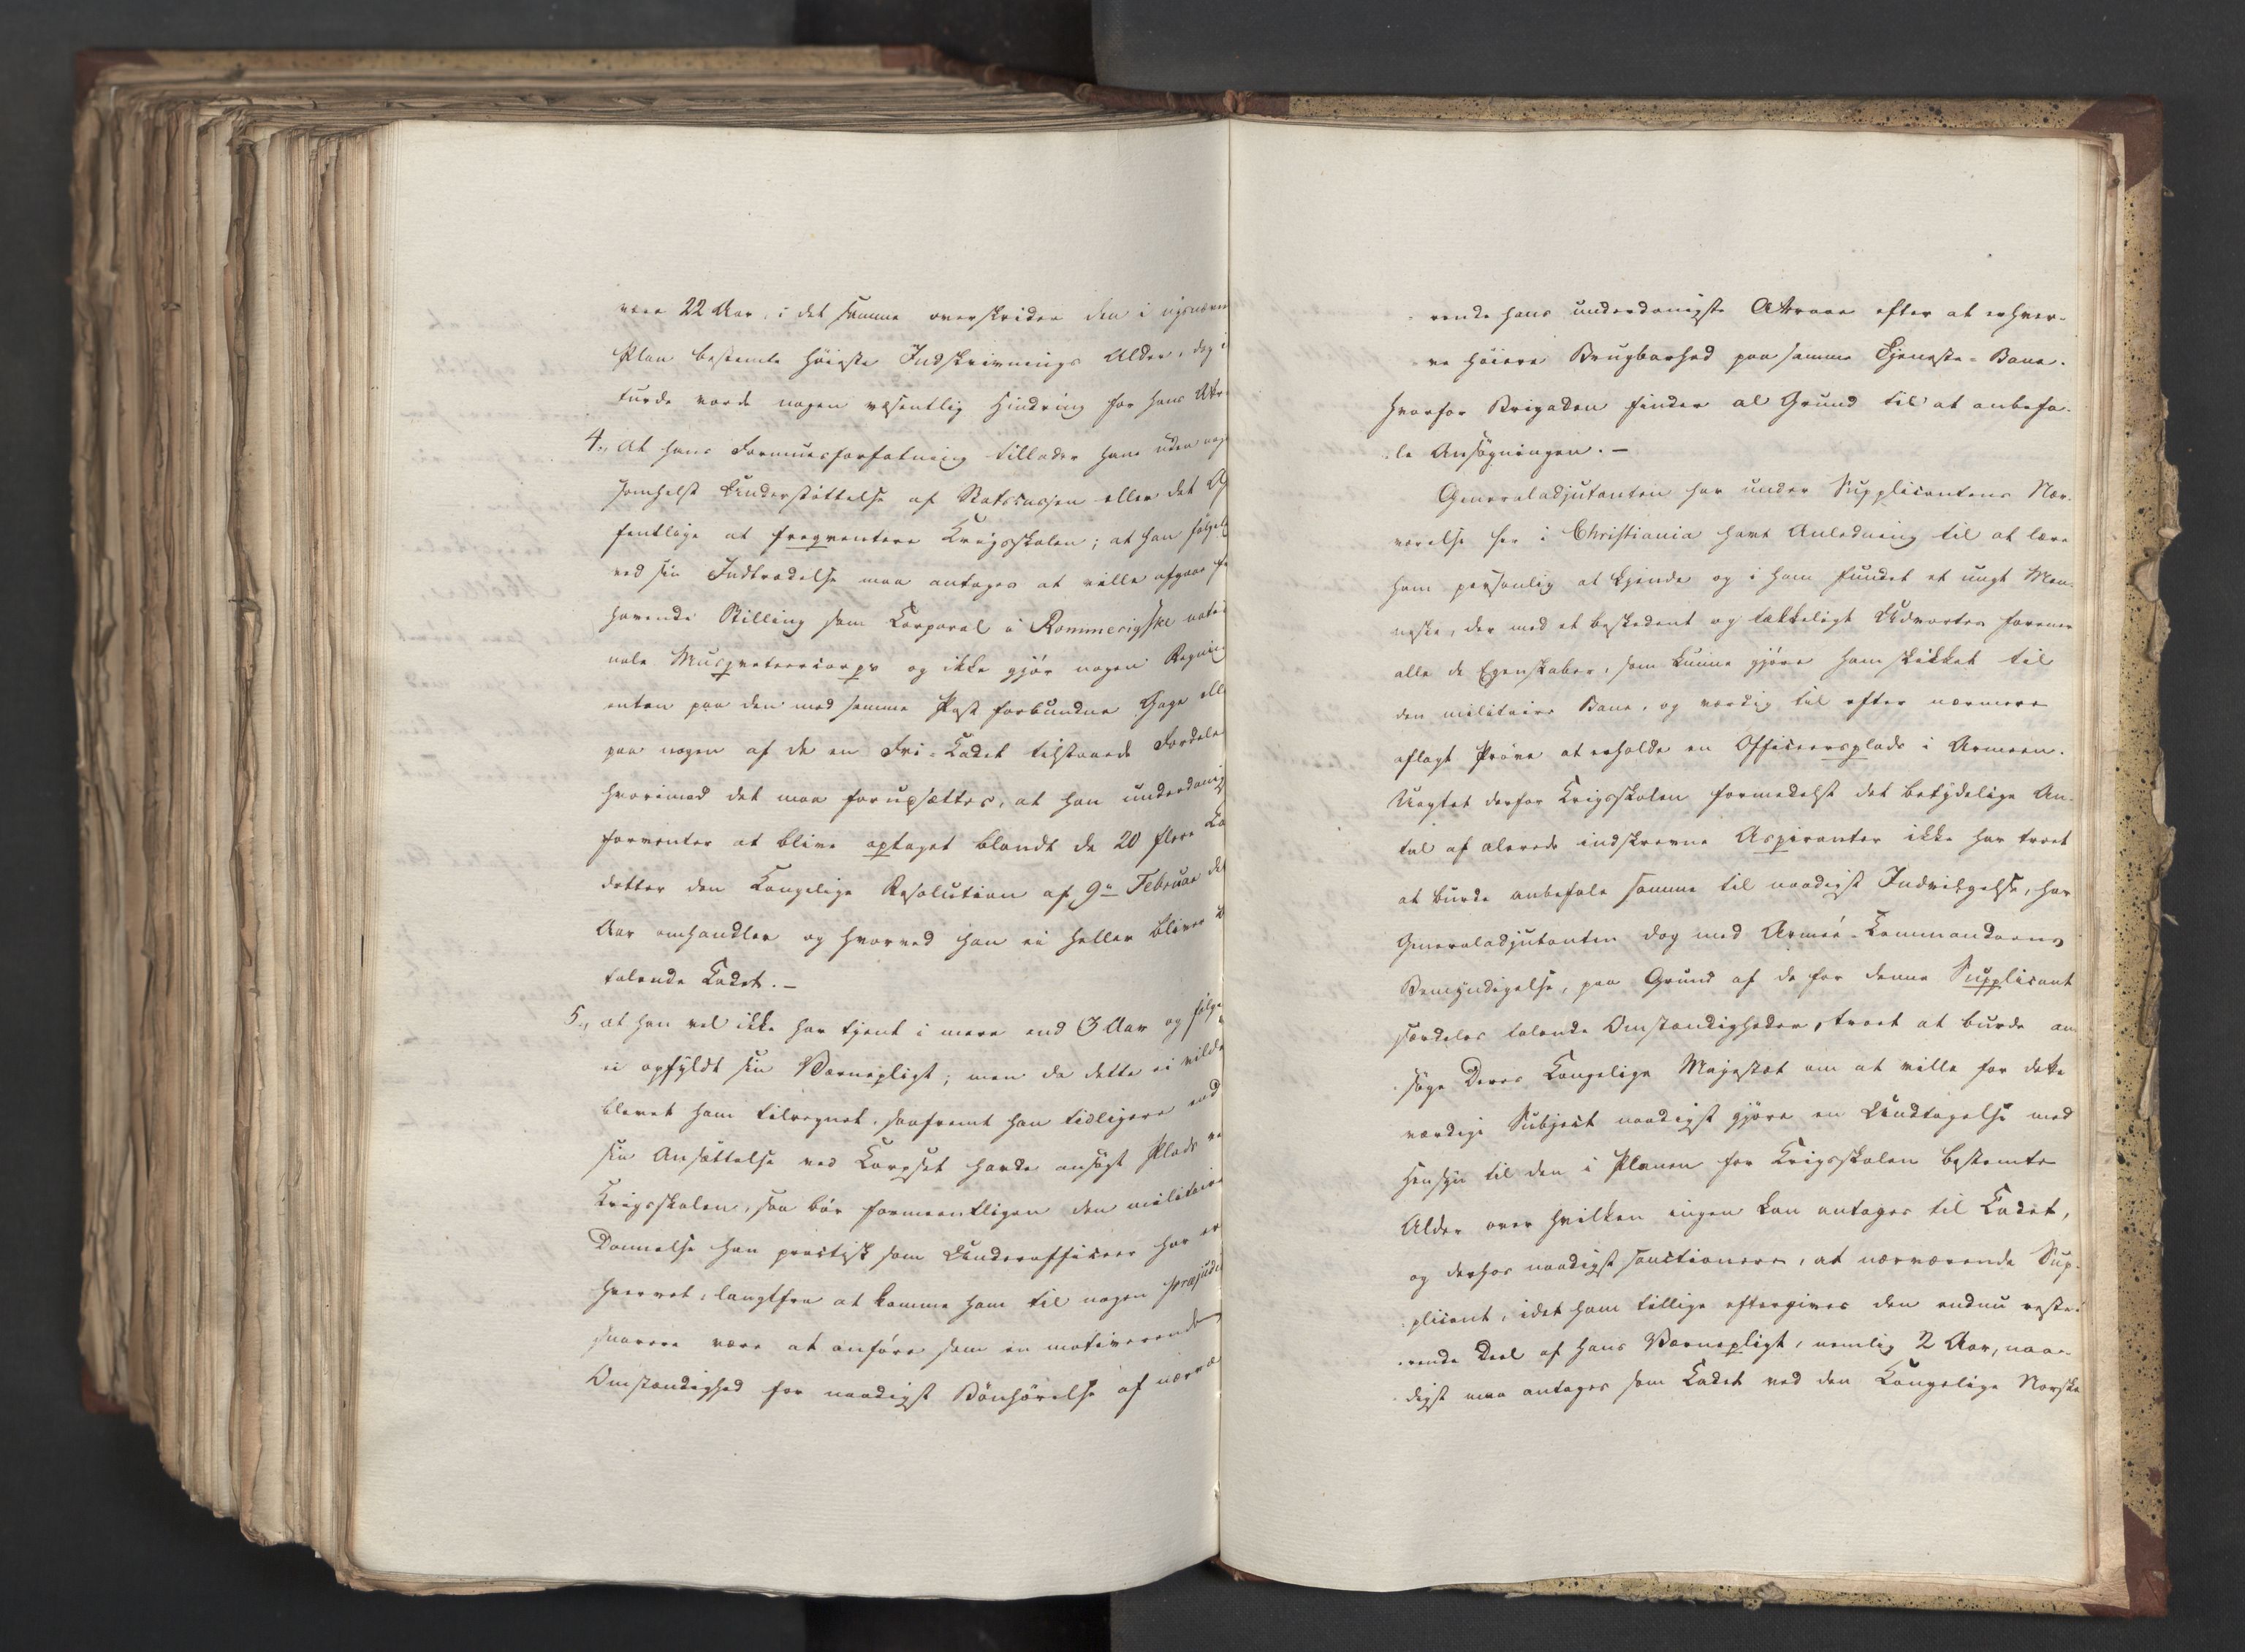 være 22 Aar, i det samme overskrider den i ugsnævn
Plan bestemte høieste Indskrivnings Alder, dog i
turde vorde nogen væsentlig Hindring for hans Attr
4., At hans Formuesforfatning tillader ham uden nog
somhelst Understøttelse af Statscassen eller det Of
fentlige at freqventere Krigsskolen; at han følgel
ved sin Indtrædelse maa antages at ville afgaae fr
havende Stilling som Corporal i Rommerigske natio
nale Musqveteercorps og ikke gjør nogen Regning
enten paa den med samme Post forbundne Gage elle
paa nogen af de en Fri-Cadet tilstaaede Fordele
hvorimod det maa forudsættes, at han underdanig
forventer at blive optaget blandt de 20 flere Ca
detter den Kongelige Resolution af 9de Februar d.
Aar omhandler og hvorved han ei heller bliver
talende Cadet. –
5., at han vel ikke har tjent i mere end 3 Aar og følge
ei opfyldt sin Værnepligt; men da dette ei vilde
blevet ham tilregnet, saafremt han tidligere end
sin Ansættelse ved Corpset havde ansøgt Plads ve
Krigsskolen, saa bør formeentligen den militaire
Dannelse han practisk som Underofficeer har er
hvervet, langtfra at komme ham til nogen præjudi
snarere være at anføre som en motiverende
Omstændighed for naadigst Bønhørelse af nærvæ
rende hans underdanigste Attraae efter at erhver-
ve høiere Brugbarhed paa samme Tjeneste-Bane.
Hvorfor Brigaden finder al Grund til at anbefa-
le Ansøgningen. –
Generaladjutanten har under Supplicantens Nær-
værelse her i Christiania havt Anledning til at lære
ham personlig at kjende og i ham fundet et ungt Men-
neske, der med et beskedent og tækkeligt Udvortes forener
alle de Egenskaber, som kunne gjøre ham skikket til
den militaire Bane, og værdig til efter nærmere
aflagt Prøve at erholde en Officeersplads i Armeen.
Uagtet derfor Krigsskolen formedelst det betydelige An-
tal af alerede indskrevne Aspiranter ikke har troet
at burde anbefale samme til naadigst Indvilgelse, har
Generaladjutanten dog med Armée-Commandoens
Bemyndigelse, paa Grund af de for denne Supplicant
særdeles talende Omstændigheder, troet at burde an
søge Deres Kongelige Majestæt om at ville for dette
værdige Subject naadigst gjøre en Undtagelse med
Hensyn til den i Planen for Krigsskolen bestemte
Alder over hvilken ingen kan antages til Cadet,
og derhos naadigst sanctionere, at nærværende Sup-
plicant, idet ham tillige eftergives den endnu reste-
rende Deel af hans Værnepligt, nemlig 2 Aar, naa-
digst maa antages som Cadet ved den Kongelige Norske